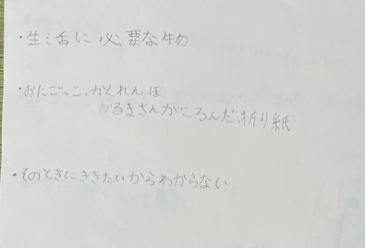 ・生活に必要な物
・おにごっこ、かくれんぼ
だるまさんがころんだ折り紙
・そのときにききたいからわからない